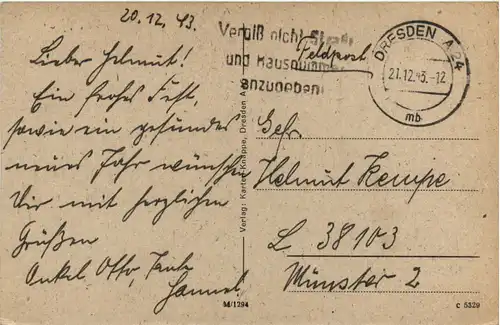 20.12.43.
Lieber Helmut!
Ein frohes Fest,
sowie ein gesundes
neues Jahr wünschen
Dir mit herzlichen
Grüßen
Onkel Otto, Tante
Vergiß nicht Straße
und Hausnummer
anzugeben
Feldpost
DRESDEN A 24
21.12.43.-12
mb
Gefr.
Helmut Kempe
L 38103
Münster 2
Verlag: Karten-Knappe, Dresden A
M/1294
C 5329